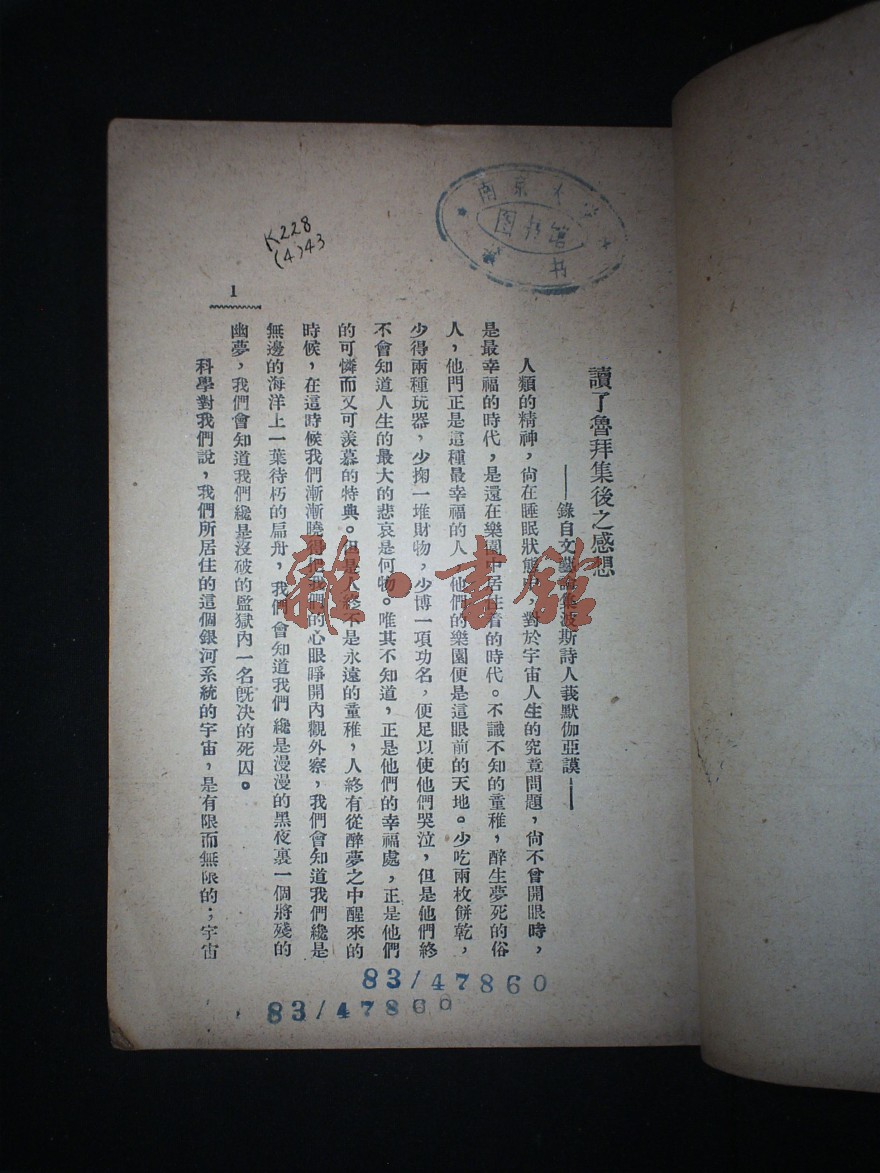 讀了魯拜集後之感想
——錄自文藝論集波斯詩人莪默伽亞謨——
人類的精神，尚在睡眠狀態中，對於宇宙人生的究竟問題，尚不曾開眼時，
是最幸福的時代，是還在樂園中居住着的時代。不識不知的童稚，醉生夢死的俗
人，他門正是這種最幸福的人，他們的樂園便是這眼前的天地。少吃兩枚餅乾，
少得兩種玩器，少掬一堆財物，少博一項功名，便足以使他們哭泣，但是他們終
不會知道人生的最大的悲哀是何物。唯其不知道，正是他們的幸福處，正是他們
的可憐而又可羨慕的特典。但是人終不是永遠的童稚，人終有從醉夢之中醒來的
時候，在這時候我們漸漸曉得把我們的心眼睜開內觀外察，我們會知道我們纔是
無邊的海洋上一葉待朽的扁舟，我們會知道我們纔是漫漫的黑夜裏一個將殘的
幽夢，我們會知道我們纔是沒破的監獄內一名旣决的死囚。
科學對我們說，我們所居住的這個銀河系統的宇宙，是有限而無限的；宇宙
1
K228
(4)43
南京大学
图书馆
书
83/47860
83/47860
雜·書館